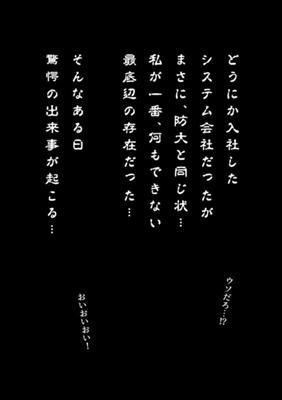 どうにか入社した
システム会社だったが
まさに、防大と同じ状…
私が一番、何もできない
最底辺の存在だった…
そんなある日
驚愕の出来事が起こる…
ウソだろ…!?
おいおいおい!